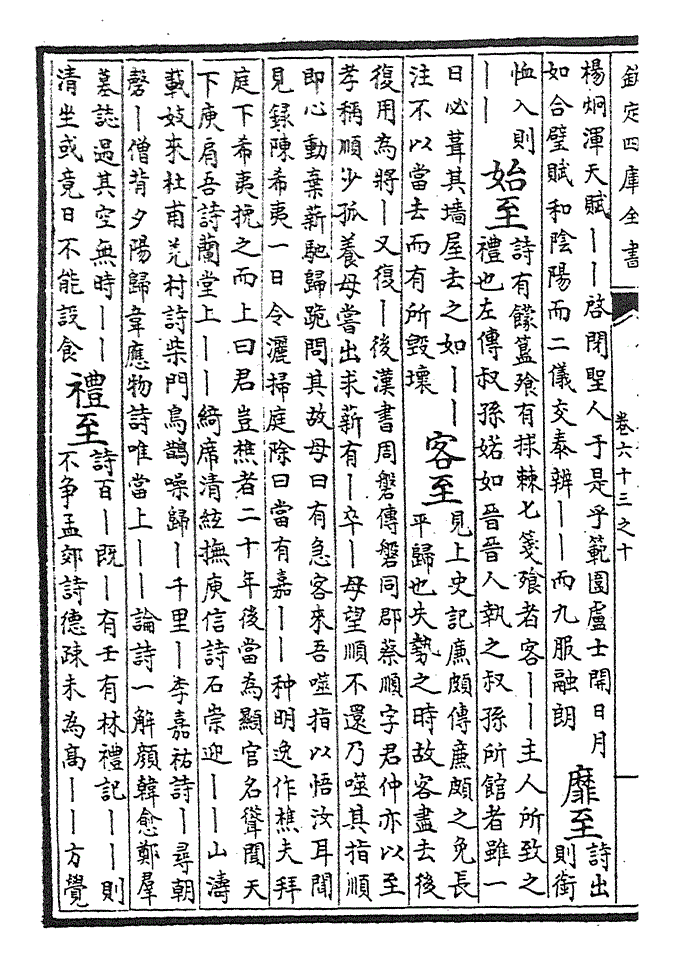 欽定四庫全書 卷六十三之十
楊炯渾天賦丨丨啓閉聖人于是乎範圍盧士開日月
如合璧賦和陰陽而二儀交泰辨丨丨而九服融朗
靡至
詩出
則銜
恤入則
丨丨
始至
詩有饛簋飱有捄棘匕箋飱者客丨丨主人所致之
禮也左傳叔孫婼如晉晉人執之叔孫所館者雖一
日必葺其墻屋去之如丨丨
注不以當去而有所毀壞
客至
見上史記廉頗傳廉頗之免長
平歸也失勢之時故客盡去後
復用為將丨又復丨後漢書周磐傳磐同郡蔡順字君仲亦以至
孝稱順少孤養母嘗出求薪有丨卒丨母望順不還乃噬其指順
即心動棄薪馳歸跪問其故母曰有急客來吾噬指以悟汝耳聞
見録陳希夷一日令灑掃庭除曰當有嘉丨丨种明逸作樵夫拜
庭下希夷挽之而上曰君豈樵者二十年後當為顯官名聲聞天
下庾肩吾詩蘭堂上丨丨綺席清絃撫庾信詩石崇迎丨丨山濤
載妓來杜甫羌村詩柴門鳥鵲噪歸丨千里丨李嘉祐詩丨尋朝
磬丨僧背夕陽歸韋應物詩唯當上丨丨論詩一解顔韓愈鄭羣
墓誌遇其空無時丨丨
清坐或竟日不能設食
禮至
詩百丨既丨有壬有林禮記丨丨則
不争孟郊詩德疎未為高丨丨方覺